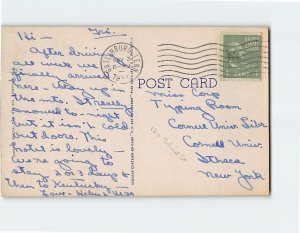 Hi - Fri.
After driving
all week we
finally arrived
here - Way up in
the mts. It really
snowed to-night
but it isn't cold
out doors. This
hotel is lovely -
we're going to
stay 2 or 3 days &
then to Kentucky -
Love - Helen & Max
GATLINBURG, TENN.
POST CARD
Miss Corp
Typing Room
Cornell Univ. Libr.
Cornell Univ.
Ithaca
New York